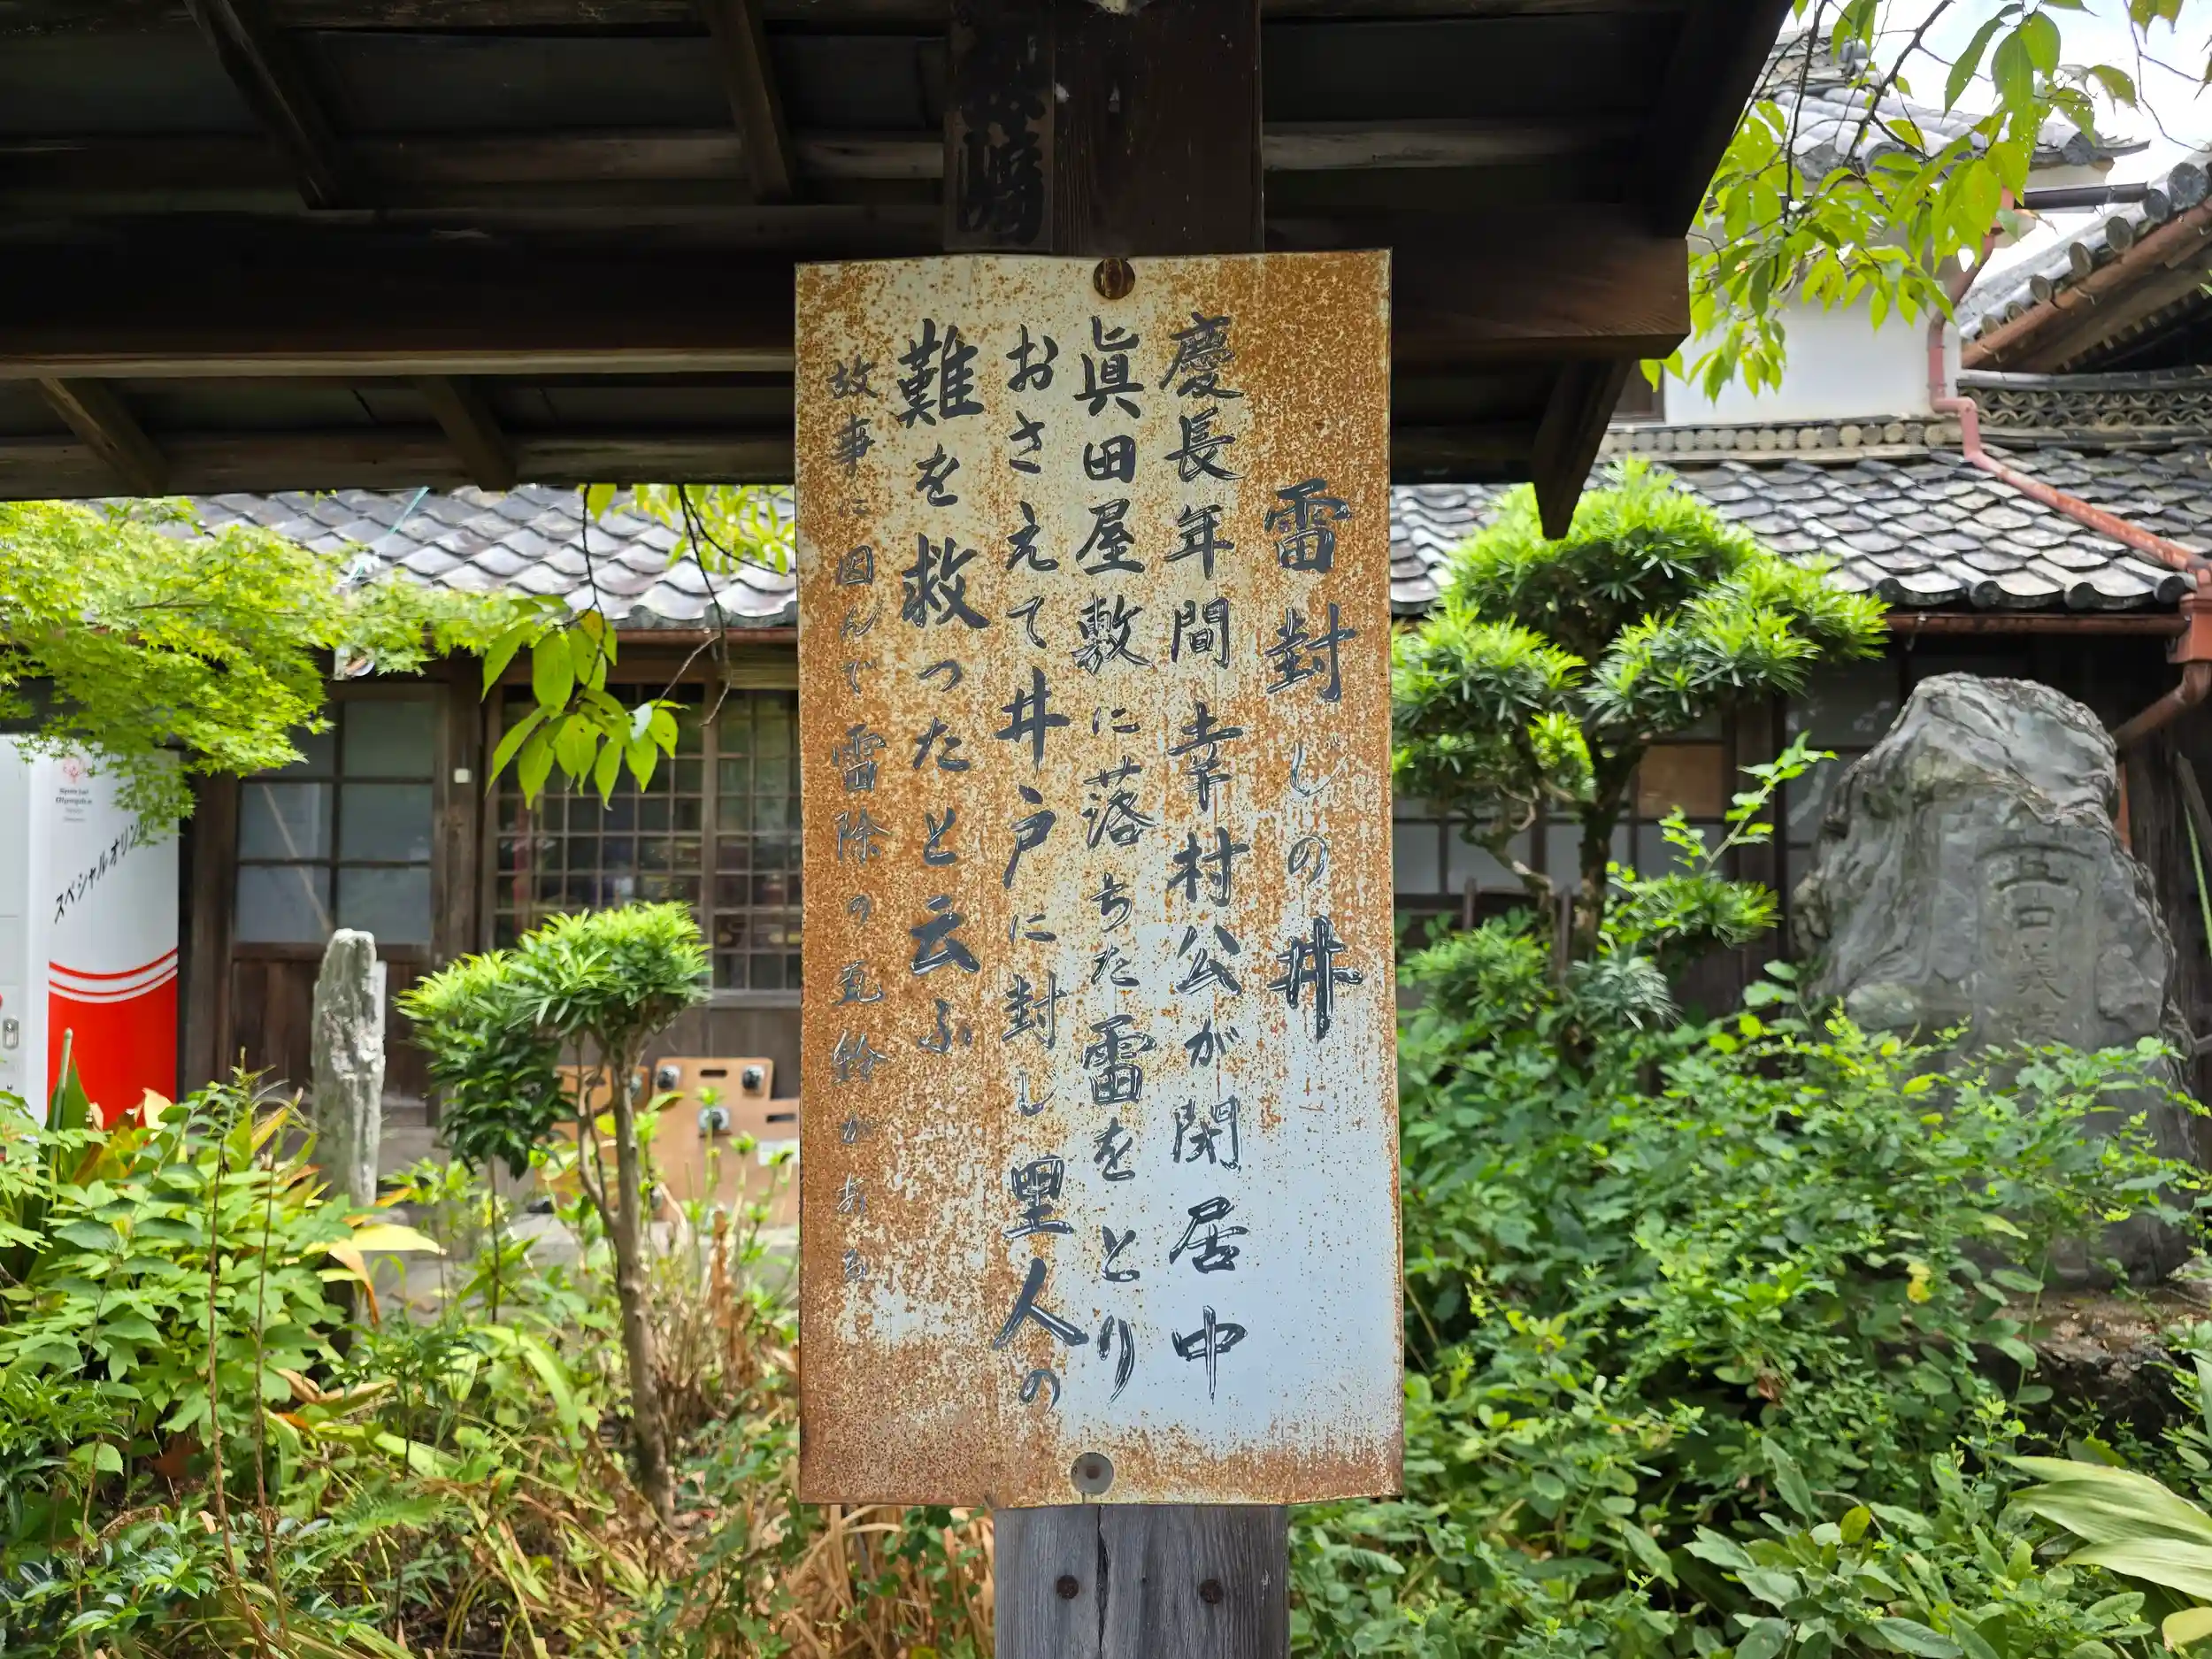 雷封じの井
慶長年間幸村公が閑居中
眞田屋敷に落ちた雷をとり
おさえて井戸に封じ里人の
難を救ったと云ふ
故事に因んで雷除の瓦鈴がある
Special
Olympics
スペシャルオリン